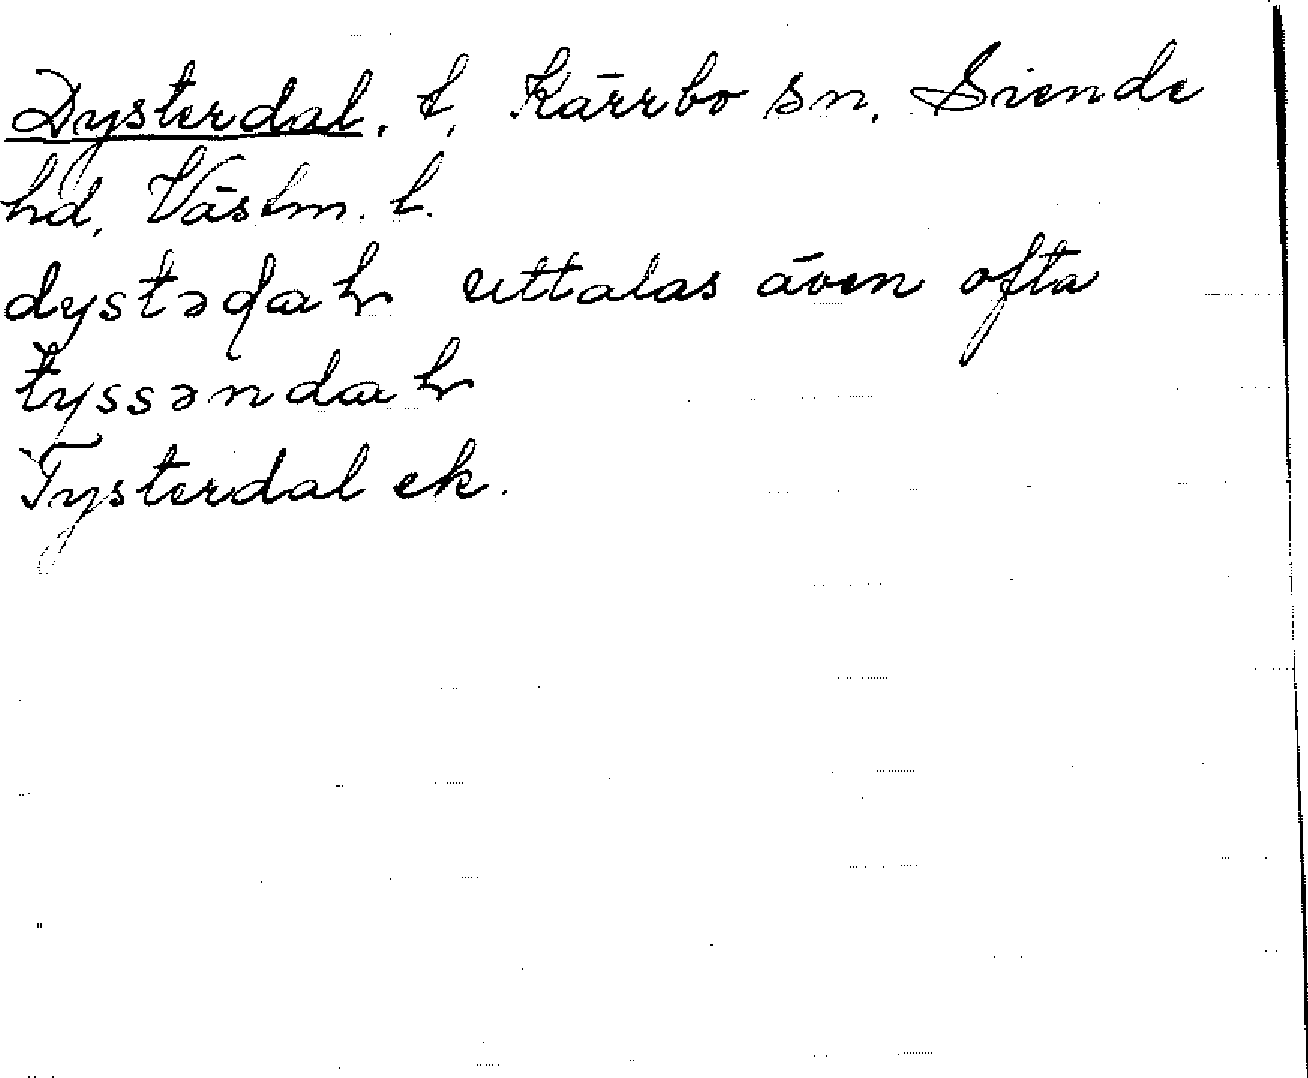 Dysterdal. t. Kärrbo sn. Siende
hd. Västm. l.
dystədaɽ uttalas även ofta
tyssəndaɽ
Tysterdal ek.